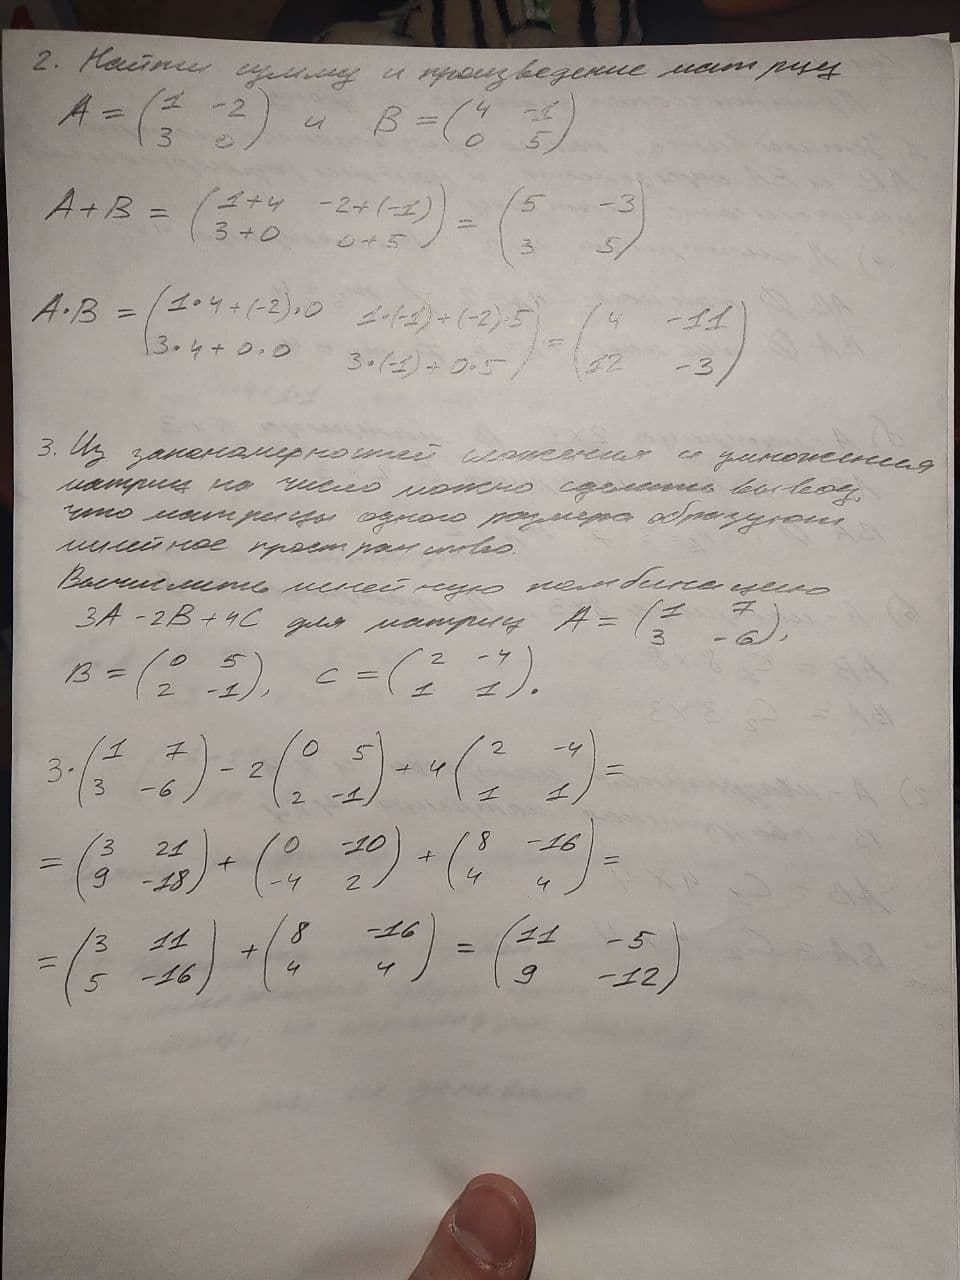 2. Найти сумму и произведение матриц
A = (1 -2
3 0) и B = (4 -1
0 5)
A+B = (1+4 -2+(-1)
3+0 0+5) = (5 -3
3 5)
A•B = (1•4+(-2)•0 1•(-1)+(-2)•5
3•4+0•0 3•(-1)+0•5) = (4 -11
12 -3)
3. Из закономерностей сложения и умножения
матриц на число можно сделать вывод,
что матрицы одного размера образуют
линейное пространство.
Вычислить линейную комбинацию
3A-2B+4C для матриц A = (1 7
3 -6),
B = (0 5
2 -1), C = (2 -4
1 1).
3•(1 7
3 -6) - 2(0 5
2 -1) + 4(2 -4
1 1) =
= (3 21
9 -18) + (0 -10
-4 2) + (8 -16
4 4) =
= (3 11
5 -16) + (8 -16
4 4) = (11 -5
9 -12)